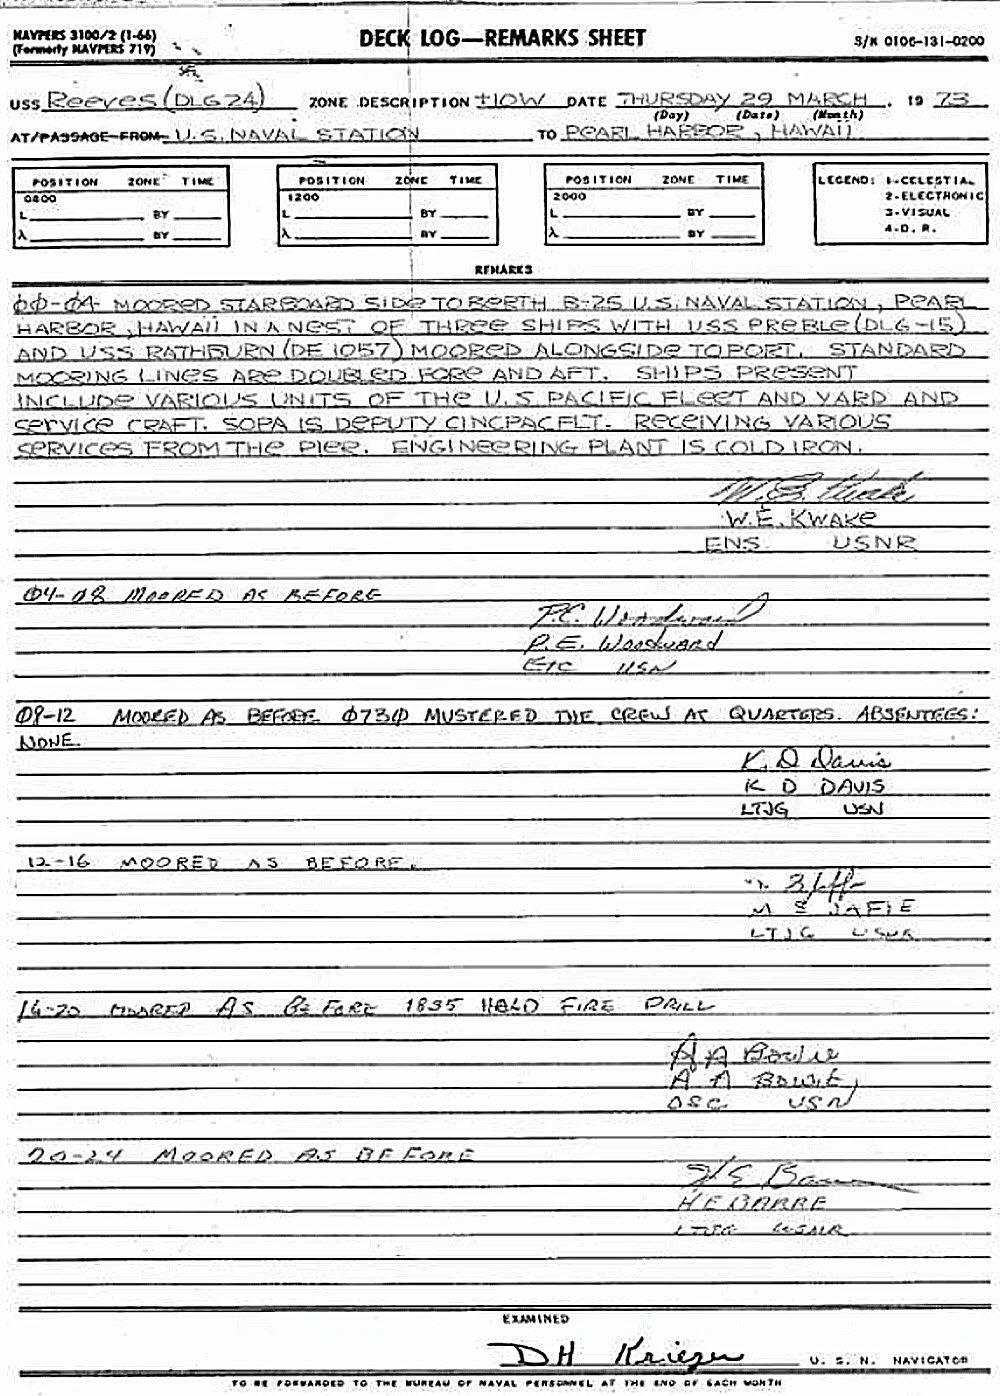 NAVPERS 3100/2 (1-66)
(Formerly NAVPERS 719)
DECK LOG—REMARKS SHEET
S/N 0106-131-0200
USS Reeves (DLG 24) ZONE DESCRIPTION +10W DATE THURSDAY 29 MARCH, 19 73
(Day) (Date) (Month)
AT/PASSAGE FROM U.S. NAVAL STATION TO PEARL HARBOR, HAWAII
POSITION ZONE TIME
0800
L BY
λ BY
POSITION ZONE TIME
1200
L BY
λ BY
POSITION ZONE TIME
2000
L BY
λ BY
LEGEND: 1-CELESTIAL
2-ELECTRONIC
3-VISUAL
4-D. R.
REMARKS
00-04- MOORED STARBOARD SIDE TO BERTH B-25 U.S. NAVAL STATION, PEARL
HARBOR, HAWAII IN A NEST OF THREE SHIPS WITH USS PREBLE (DLG-15)
AND USS RATHBURN (DE 1057) MOORED ALONGSIDE TO PORT. STANDARD
MOORING LINES ARE DOUBLED FORE AND AFT. SHIPS PRESENT
INCLUDE VARIOUS UNITS OF THE U.S. PACIFIC FLEET AND YARD AND
SERVICE CRAFT. SOPA IS DEPUTY CINCPACFLT. RECEIVING VARIOUS
SERVICES FROM THE PIER. ENGINEERING PLANT IS COLD IRON.
W. E. Kwake
W.E. KWAKE
ENS USNR
04-08 MOORED AS BEFORE
P.E. Woodward
P.E. WOODWARD
ETC USN
08-12 MOORED AS BEFORE 0730 MUSTERED THE CREW AT QUARTERS. ABSENTEES:
NONE.
K. D Davis
K D DAVIS
LTJG USN
12-16 MOORED AS BEFORE.
M E JAFFE
LTJG USNR
16-20 MOORED AS BEFORE 1835 HELD FIRE DRILL
A A Bowie
A A BOWIE,
OSC USN
20-24 MOORED AS BEFORE
H E BARRE
LTJG USNR
EXAMINED
DH Krieger U. S. N. NAVIGATOR
TO BE FORWARDED TO THE BUREAU OF NAVAL PERSONNEL AT THE END OF EACH MONTH